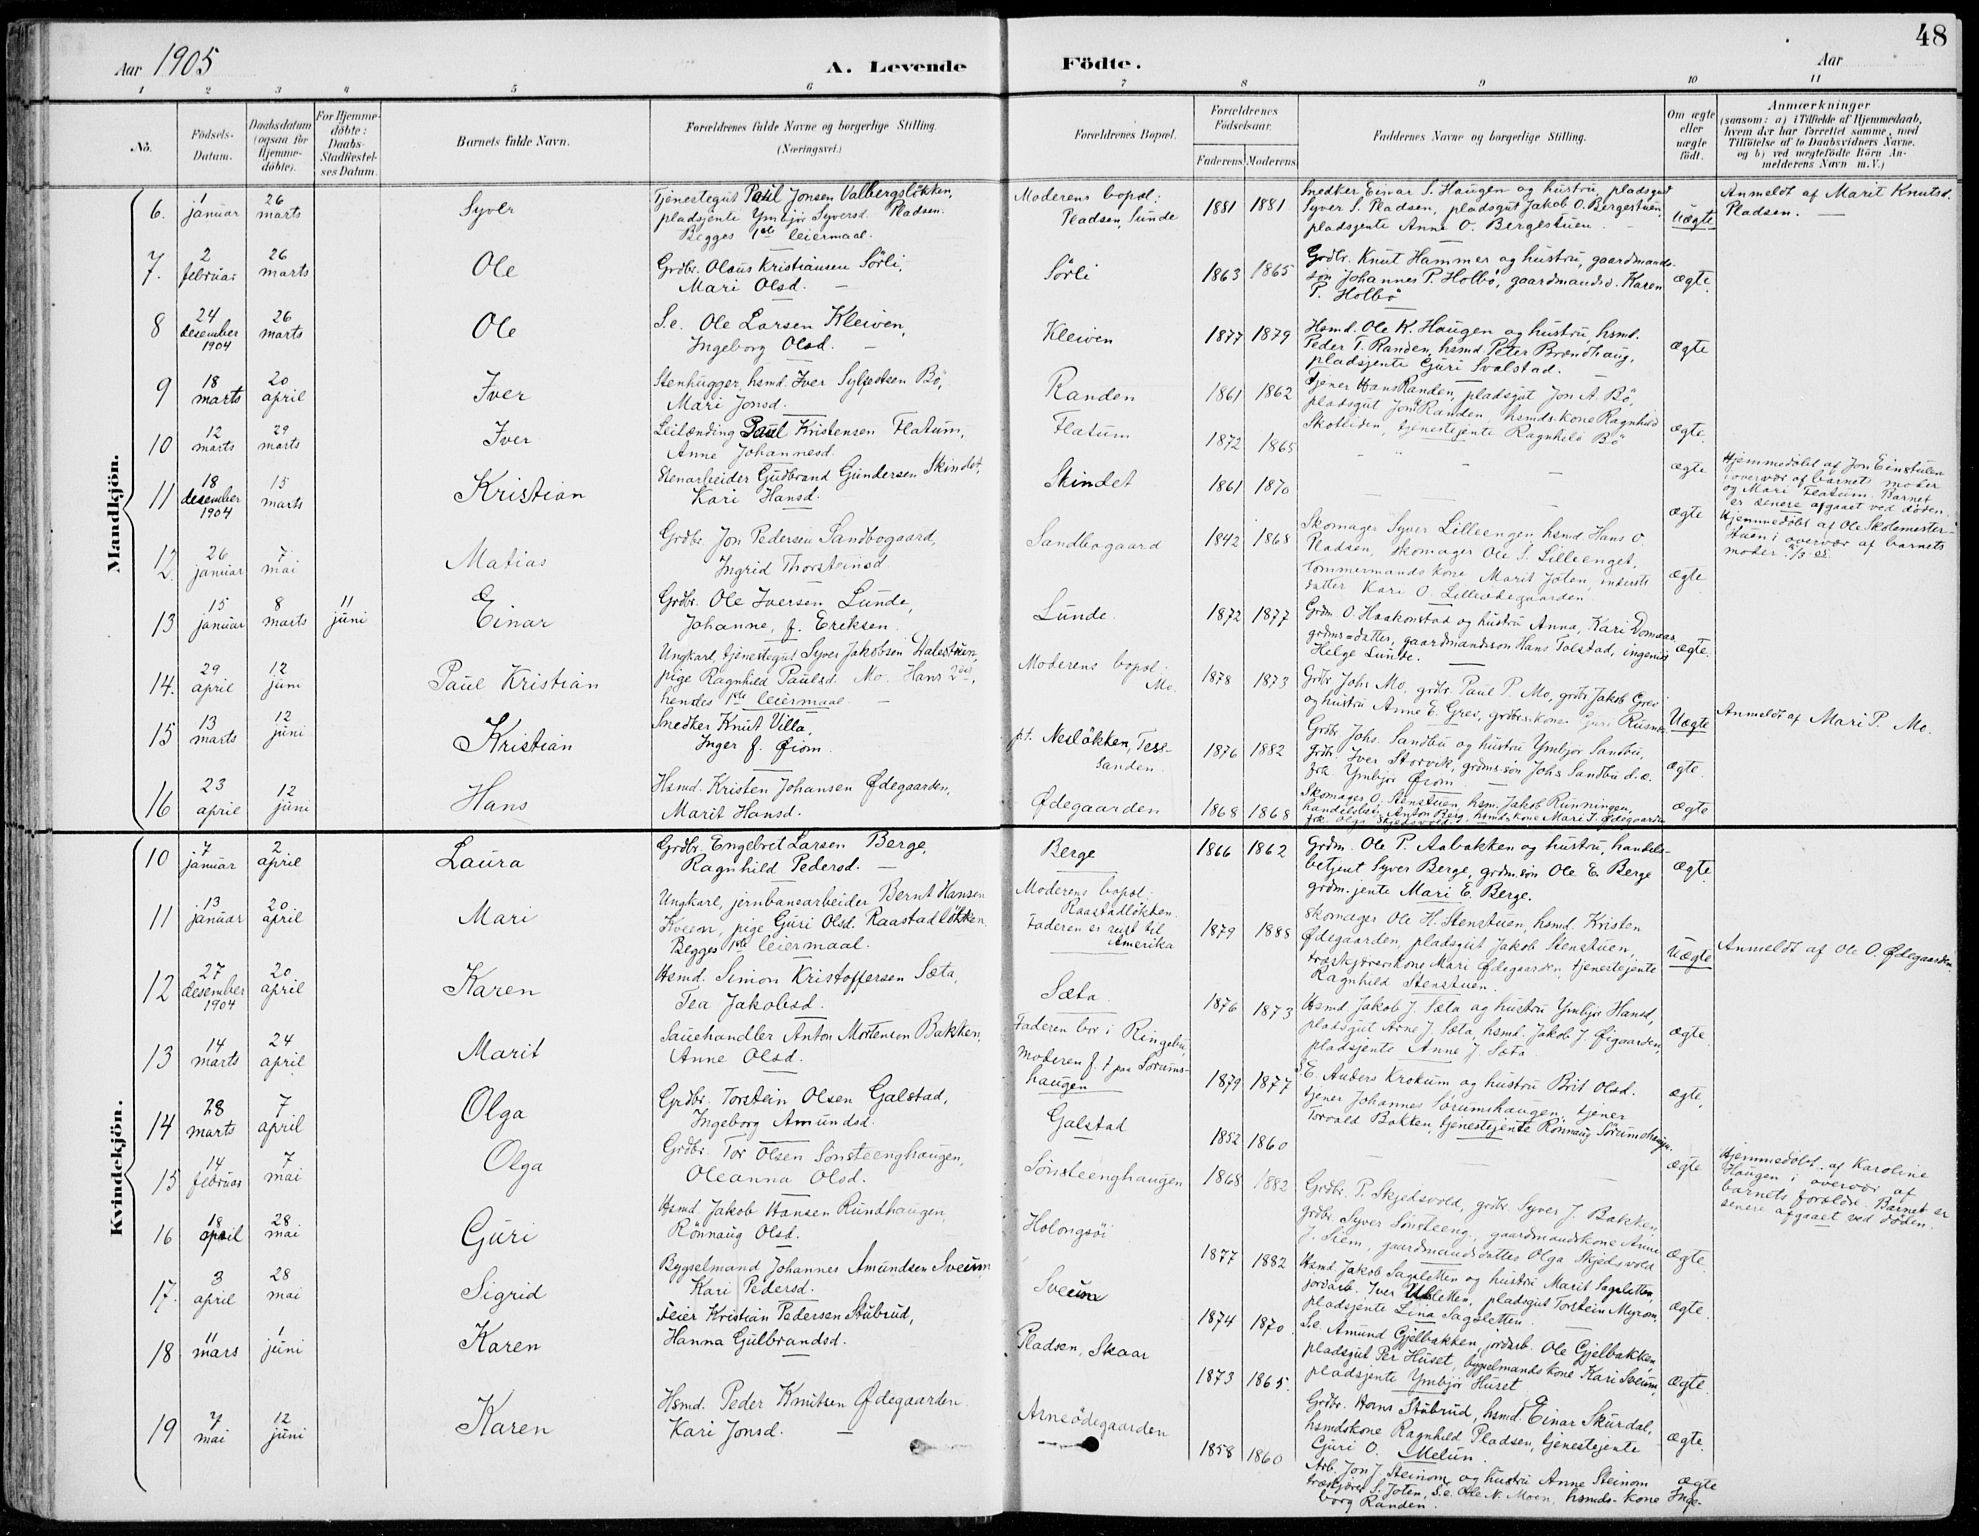 48
Aar 1905
A. Levende
Födte.
Aar
1 2 3 4 5 6 7 8 9 10 11
No.
Födsels-
Datum.
Daabsdatum
(ogsaa for
Hjemme-
döbte).
For Hjemme-
döbte:
Daabs-
Stadfæstel-
ses Datum.
Barnets fulde Navn.
Forældrenes fulde Navne og borgerlige Stilling.
(Næringsvei.)
Forældrenes Bopæl.
Forældrenes
Födselsaar.
Faderens Moderens
Faddernes Navne og borgerlige Stilling.
Om ægte
eller
uægte
födt.
Anmærkninger
(saasom: a) i Tilfælde af Hjemmedaab,
hvem der har forrettet samme, med
Tilföielse af to Daabsvidners Navne.
og b) ved uægtefödte Börn An-
melderens Navn m.V.)
Mandkjön.
6. 1 januar
26 marts
Syver
Tjenestegut Paul Jonsen Valbergsløkken,
pladsjente Ymbjør Syversd. Pladsen.
Begges 1ste leiermaal.
Moderens bopæl:
Pladsen, Sunde
1881 1881
Snedker Einar S. Haugen og hustru, pladsgut
Syver S. Pladsen, pladsgut Jakob O. Bergestuen,
pladsjente Anne O. Bergestuen.
Uægte
Anmeldt af Marit Knutsd.
Pladsen.
7. 2 februar
26 marts
Ole
Grdbr. Olaus Kristiansen Sørli,
Mari Olsd.
Sørli
1863 1865
Grdbr. Knut Hammer og hustru, gaardmands-
søn Johannes P. Holbø, gaardmandsd. Karen
P. Holbø
ægte.
8 24 desember 1904
26 marts
Ole
S.e. Ole Larsen Kleiven,
Ingeborg Olsd.
Kleiven
1877 1879
Hsmd. Ole K. Haugen og hustru, hsmd.
Peder T. Randen, hsmd Peter Brændhaug,
pladsjente Guri Svalstad.
ægte
9 18 marts
20 april
Iver
Stenhugger, hsmd. Iver Sylfestsen Bø,
Mari Jonsd.
Randen
1861 1862
Tjener Hans Randen, pladsgut Jon A. Bø,
pladsgut Jon Randen, hsmdskone Ragnhild
Skotliden, tjenestejente Ragnhild Bø
ægte.
10 12 marts
29 marts
Iver
Leilænding Paul Kristensen Flatum,
Anne Johannesd.
Flatum
1872 1865
ægte
Hjemmedøbt af Jon Einstulen
i overvær af barnets moder
og Mari Flatum. Barnet
er senere afgaaet ved døden.
11 18 desember 1904
15 marts
Kristian
Stenarbeider Gudbrand Gundersen Skindet,
Kari Hansd.
Skindet
1861 1870
ægte
Hjemmedøbt af Ole Skolemester-
stuen i overvær af barnets
moder.
12. 26 januar
7 mai
Matias
Grdbr. Jon Pedersen Sandbogaard,
Ingrid Thorsteinsd
Sandbogaard
1842 1868
Skomager Syver Lilleengen, hsmd Hans O.
Pladsen, skomager Ole S. Lilleenget,
tømmermandskone Marit Joten, inderste
datter Kari O. Lilleødegaarden
ægte
13 15 januar
8 marts
11 juni
Einar
Grdbr. Ole Iversen Lunde,
Johanne, f. Eriksen
Lunde
1872 1877
Grdm. O. Haakonstad og hustru Anna, Kari Domaas
grdms=datter, gaardmandssøn Hans Tolstad, ingeniør
Helge Lunde.
ægte.
14. 29 april
12 juni
Paul Kristian
Ungkarl, tjenestegut Syver Jakobsen
pige Ragnhild Paulsd. Mo. Hans 2det,
hendes 1ste leiermaal
Moderens bopæl.
Mo.
1878 1873
Grdbr Johs Mo, grdbr. Paul P. Mo, grdbr Jakob Grev
og hustru Anne E. Grev, grdbrskone Guri
Uægte
Anmeldt af Mari P. Mo.
15 13 marts
12 juni
Kristian
Snedker Knut Villa,
Inger f. Øiom
p.t. Nesløkken, Tese-
sanden.
1876 1882
Grdbr. Johs. Sandbu og hustru Ymbjør Sandbu,
grdbr. Iver Storvik, grdms.søn Johs Sandbu d.e.
frk. Ymbjør Øiom
ægte.
16 23 april
12 juni
Hans
Hsmd. Kristen Johansen Ødegaarden,
Marit Hansd.
Ødegaarden
1868 1868
Skomager O. Stenstuen, hsm. Jakob Runningen,
handelsbet. Anton Berg, hsmdskone Mari I. Ødegaarden
frk. Olga Skjedsvold.
ægte
Kvindekjön.
10 7 januar
2 april
Laura
Grdbr. Engebret Larsen Berge,
Ragnhild Pedersd.
Berge
1866 1862
Grdm. Ole P. Aabakken og hustru, handels-
betjent Syver Berge, grdmsøn Ole E. Berge
grdm.jente Mari E. Berge.
ægte.
11 13 januar
20 april
Mari
Ungkarl, jernbanearbeider Bernt Hansen
Kveen, pige Guri Olsd. Raastadløkken
Begges 1ste leiermaal.
Moderens bopæl.
Raastadløkken.
Faderen er reist til
Amerika
1879 1888
Skomager Ole H. Stenstuen, hsmd. Kristen
Ødegaarden, pladsgut Jakob Stenstuen,
træskjærerskone Mari Ødegaarden, tjenestejente
Ragnhild Stenstuen.
Uægte
Anmeldt af Ole O. Ødegaarden
12 27 desember 1904
20 april
Karen
Hsmd. Simon Kristoffersen Sæta,
Tea Jakobsd.
Sæta
1876 1873
Hsmd Jakob J. Sæta og hustru Ymbjør Hansd,
pladsgut Arne J. Sæta, hsmd. Jakob J. Øigaarden,
pladsjente Anne J. Sæta
ægte
13 14 marts
24 april
Marit
Sauehandler Anton Mortensen Bakken,
Anne Olsd.
Faderen bor i Ringebu,
Moderen f. t. paa Sørums-
haugen
1879 1877
S.E. Anders Krokum og hustru Brit Olsd.
tjener Johannes Sørumshaugen, tjener
Torvald Bakken, tjenestejente Rønnaug Sørumshaugen.
ægte,
14 28 marts
7 april
Olga
Grdbr. Torstein Olsen Galstad,
Ingeborg Amundsd.
Galstad
1852 1860
ægte
Hjemmedøbt af Karoline
Haugen i overvær af
barnets forældre. Barnet er
senere afgaaet ved døden.
15 14 februar
7 mai
Olga
Grdbr. Tor Olsen Sønsteenghaugen,
Oleanna Olsd.
Sønsteenghaugen
1868 1882
Grdbr. P. Skjedsvold, grdbr. Syver J. Bakken,
grdbr. Syver Sønsteeng, gaardmandskone Anne
J. Siem, gaardmandsdatter Olga Skjedsvold
ægte
16 18 april
28 mai
Guri
Hsmd. Jakob Hansen Rundhaugen,
Rønnaug Olsd.
Holongsøi
1877 1882
Hsmd Jakob Sagsletten og hustru Marit Sagsletten
jordarb. Iver pladsgut Torstein Myrom,
pladsjente Lina Sagsletten
ægte
17. 3 april
28 mai
Sigrid
Bygselmand Johannes Amundsen Sveum
Kari Pedersd.
Sveum
1874 1870
S.e. Amund Gjelbakken, jordarb. Ole Gjelbakken
pladsgut Per Huset, bygselmands kone Kari Sveum,
pladsjente Ymbjør Huset
ægte.
18 11 mars
1 juni
Karen
Feier Kristian Pedersen Stubrud,
Hanna Gulbrandsd.
Pladsen, Skaar
1873 1865.
Grdbr. Hans Stubrud, hsmd. Einar Skurdal,
hsmdskone Ragnhild Pladsen, tjenestejente
Guri O. Melum.
ægte.
19 7 mai
12 juni
Karen
Hsmd. Peder Knutsen Ødegaarden
Kari Jonsd.
Arneødegaarden
1858 1860
Arb. Jon J. Steinom og hustru Anne Steinom
træskjærer S. Joten, S.e. Ole N. Moen, hsmds-kone Inge-
borg Randen.
ægte